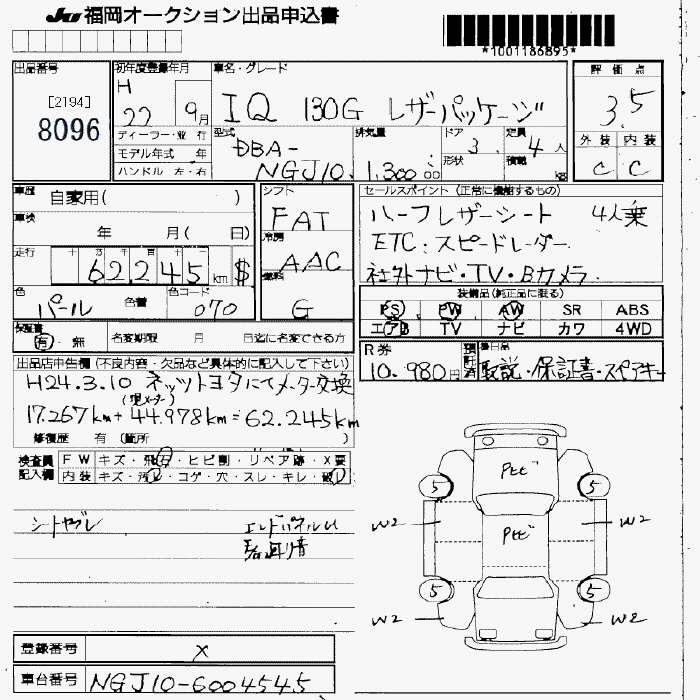 JU 福岡オークション出品申込書
*1001186895*
出品番号
[2194]
8096
初年度登録年月
H
22 9月
車名・グレード
IQ 130G レザーパッケージ
評価点
3.5
ディーラー・並行
モデル年式 年
ハンドル 左・右
型式
DBA-
NGJ10
排気量
1,300 cc
ドア
3
形状
定員
4人
積載
kg
外装 内装
C C
車歴 自家用( )
車検 年 月( 日)
走行 十 万 千 百 十
62245km $
色 パール 色替 色コード 070
シフト
FAT
冷房
AAC
燃料
G
セールスポイント (正常に機能するもの)
ハーフレザーシート 4人乗
ETC・スピードレーダー
社外ナビ・TV・Bカメラ
装備品(純正品に限る)
PS PW AW SR ABS
エアB TV ナビ カワ 4WD
保証書
有・無 名変期限 月 日迄に名変できる方
R券
10.980円
預託済
後日品
取説・保証書・スペアキー
出品店申告欄 (不良内容・欠品など具体的に記入して下さい)
H24.3.10 ネッツトヨタにてメーター交換
(現メーター)
17.267km + 44.978km = 62.245km
修復歴 有 (箇所 )
検査員記入欄
FW キズ・飛石・ヒビ割・リペア跡・X要
内装 キズ・汚れ・コゲ・穴・スレ・キレ・破れ
シートヤブレ
エンドパネルU
PとビPとビ
5 5
W2 W2
5 5
W2 W2
登録番号 X
車台番号 NGJ10-6004545